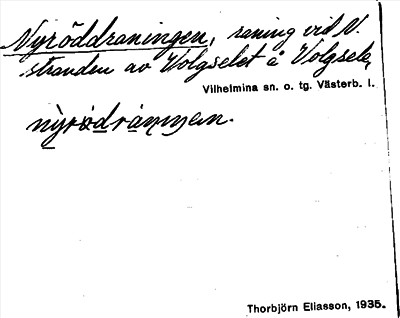 Nyröddraningen, raning vid N.
stranden av Volgselet å Volgsele,
Vilhelmina sn. o. tg. Västerb. l.
nỳrö̀drániŋen.
Thorbjörn Eliasson, 1935.